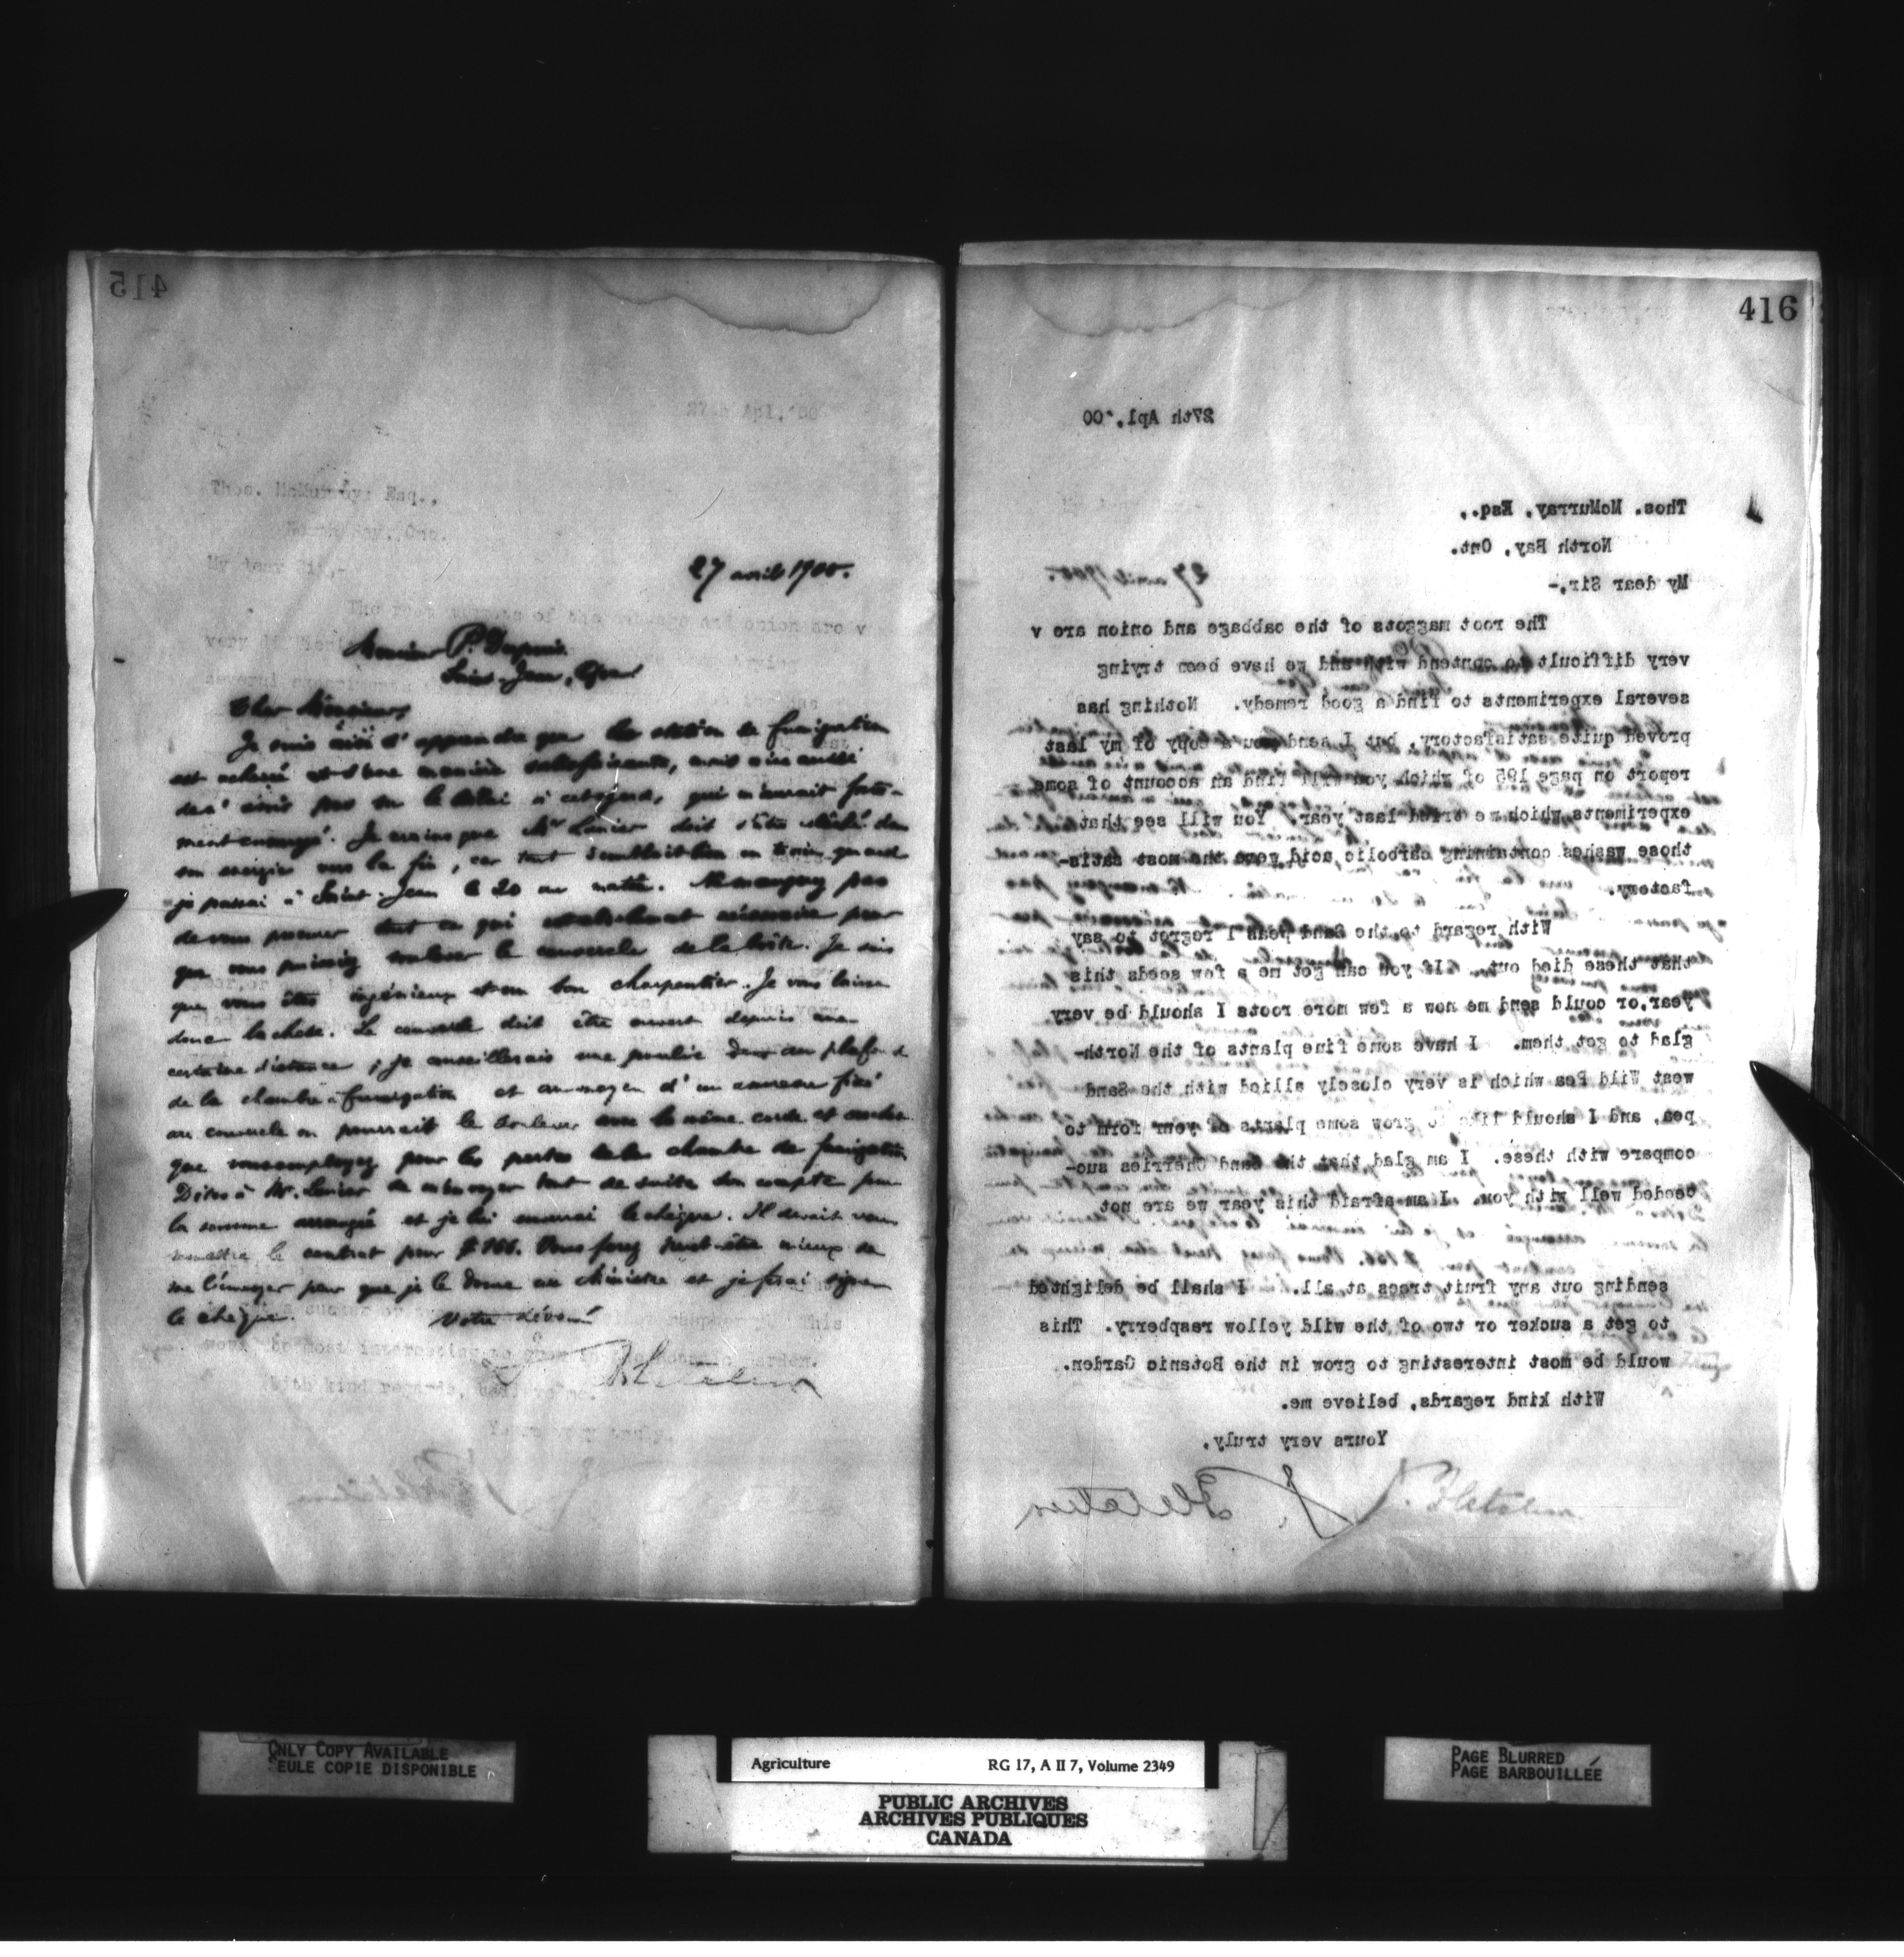 415
27 avril 1900.
Monsieur P. Dupuis.
Saint-Jean, Que
Cher Monsieur,
Je suis d'apprendre que la station de fumigation
est achevé et d'une manière satisfaisante, mais
pas le délai à cet égard, qui m'aurait forte-
ment ennuyé. Je crains que Mr Lanier doit s'être
son énergie vers la fin, car tout semblait bien en train quand
je passai à Saint-Jean le 20 au matin. Ne manquez pas
de vous procurer tout ce qui nécessaire pour
que vous puissiez soulever le couvercle de la boîte. Je sais
que vous êtes ingénieux et un bon charpentier. Je vous laisse
donc la chose. Le couvercle doit être ouvert depuis une
certaine distance; je conseillerais une poulie dans au plafond
de la chambre à fumigation et au moyen d'un anneau fixé
au couvercle on pourrait le soulever avec la même corde et
que vous employez pour les portes de la chambre de fumigation
Dites à Mr. Lanier de m'envoyer tout de suite son compte pour
la somme arrangée et je lui enverrai le chèque. Il devait vous
remettre le contrat pour $166. Vous ferez peut-être mieux de
me l'envoyer pour que je le donne au Ministre et je ferai signer
le chèque.
Votre dévoué
J. Fletcher
416
27th Apl.'00
Thos. McMurray, Esq.,
North Bay, Ont.
My dear Sir,-
The root maggots of the cabbage and onion are v
very difficult to contend with and we have been trying
several experiments to find a good remedy. Nothing has
proved quite satisfactory, but I send you a copy of my last
report on page 195 of which you will find an account of some
experiments which we tried last year. You will see that
those washes containing carbolic acid were the most satis-
factory.
With regard to the Sand peas I regret to say
that these died out. If you can get me a few seeds this
year,or could send me now a few more roots I should be very
glad to get them. I have some fine plants of the North-
west Wild Pea which is very closely allied with the Sand
pea, and I should like to grow some plants of your form to
compare with these. I am glad that the Sand Cherries suc-
ceeded well with you. I am afraid this year we are not
sending out any fruit trees at all. I shall be delighted
to get a sucker or two of the wild yellow raspberry. This
would be most interesting to grow in the Botanic Garden.
With kind regards, believe me.
Yours very truly,
J. Fletcher
ONLY COPY AVAILABLE
SEULE COPIE DISPONIBLE
Agriculture RG 17, A II 7, Volume 2349
PUBLIC ARCHIVES
ARCHIVES PUBLIQUES
CANADA
PAGE BLURRED
PAGE BARBOUILLÉE